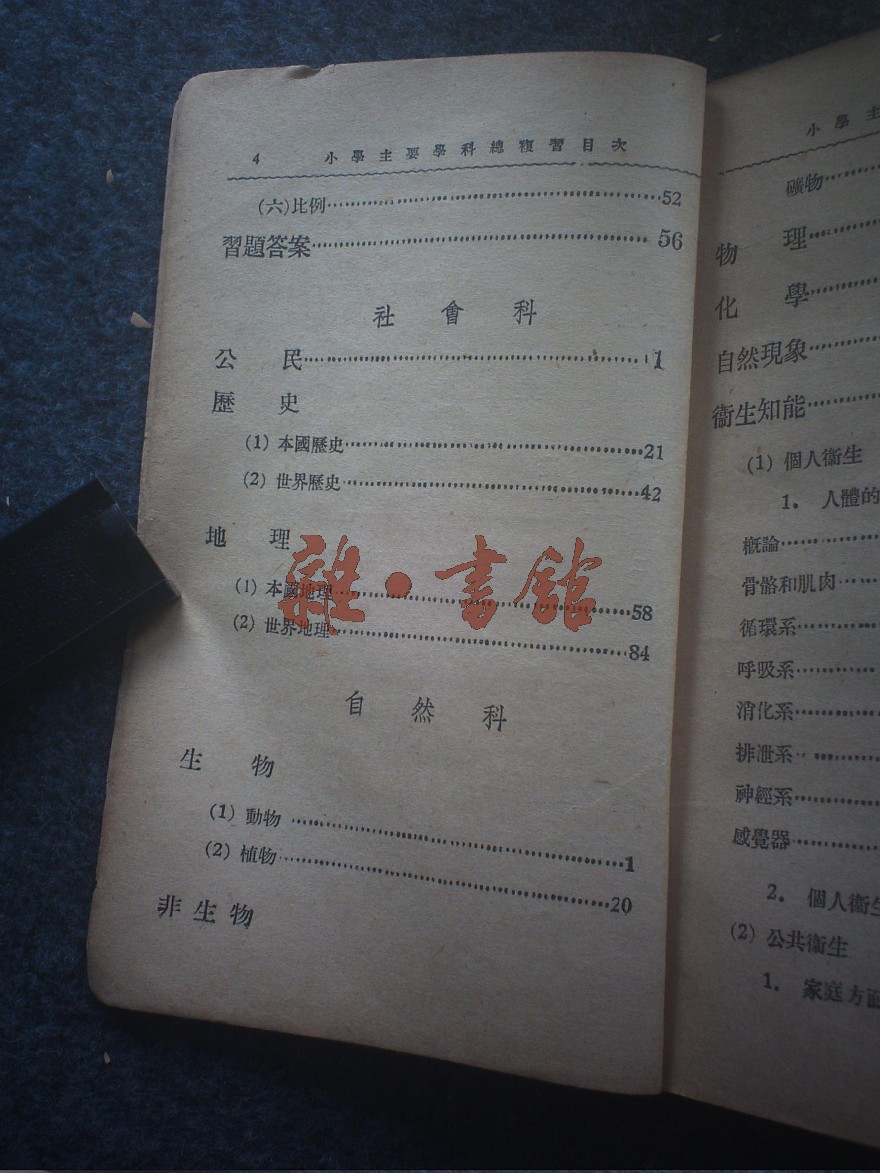 4 小學主要學科總複習目次
(六)比例 52
習題答案 56
社會科
公民 1
歷史
(1) 本國歷史 21
(2) 世界歷史 42
地理
(1) 本國地理 58
(2) 世界地理 84
自然科
生物
(1) 動物 1
(2) 植物 20
非生物
雜·書館
小學主
礦物
物理
化學
自然現象
衞生知能
(1) 個人衞生
1. 人體的
概論
骨骼和肌肉
循環系
呼吸系
消化系
排泄系
神經系
感覺器
2. 個人衞生
(2) 公共衞生
1. 家庭方面